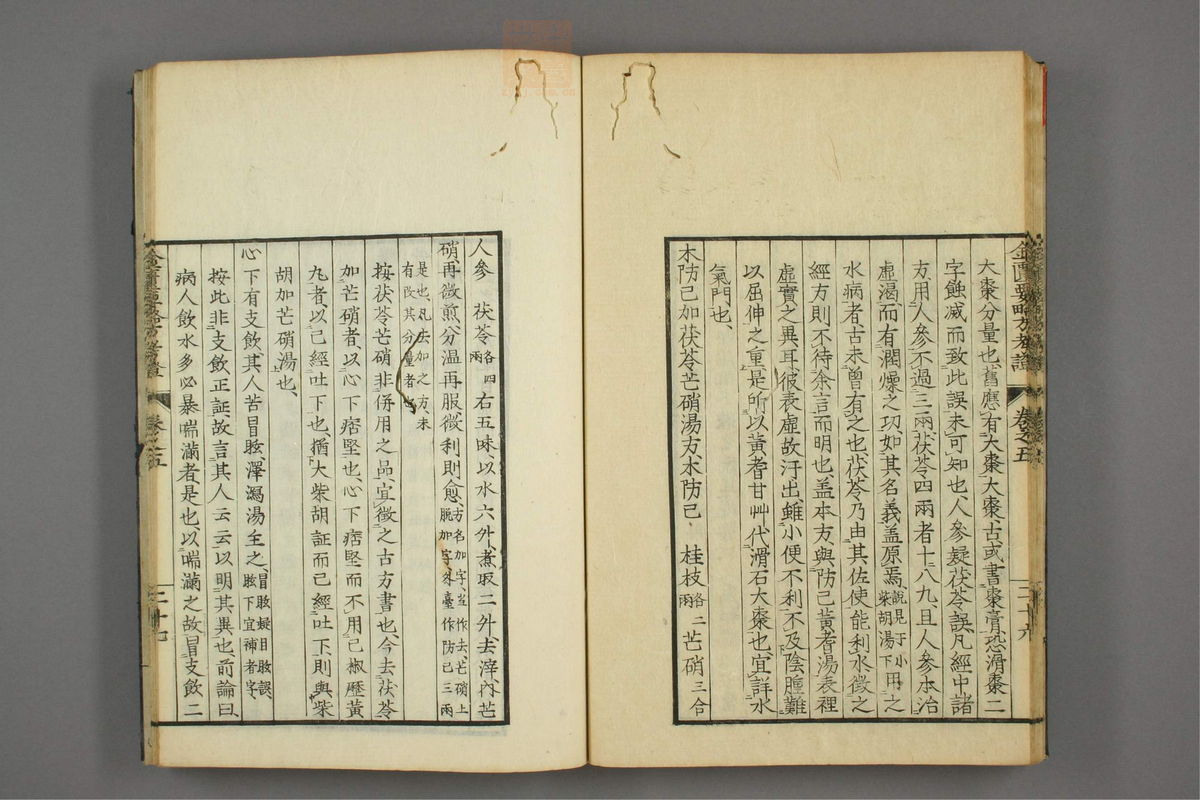 金匱要略方考證 卷之五 三十六
大棗分量也、舊應有大棗、大棗、古或書棗膏、恐滑棗二
字蝕滅而致此誤、未可知也、人參疑茯苓誤、凡經中諸
方、用人參不過三兩、茯苓四兩者十八九、且人參本治
虛渴、而有潤燥之功、如其名義、蓋原焉、說見于小柴胡湯下、用之
水病者、古未曾有之也、茯苓乃由其佐使能利水、徵之
經方、則不待余言而明也、蓋本方與防己黃耆湯、表裡
虛實之異耳、彼表虛、故汗出、雖小便不利、不及陰腫難
以屈伸之重、是所以黃耆甘艸、代滑石大棗也、宜詳水
氣門也、
木防己加茯苓芒硝湯方、木防己 桂枝各二兩 芒硝三合
人參 茯苓各四兩 右五味以水六升、煮取二升、去滓、內芒
硝、再微煎、分溫再服、微利則愈、方名加字、當作去、芒硝上脫加字、外臺作防己三兩
是也、凡去加之方、未有改其分量者也
按茯苓芒硝、非併用之品、宜徵之古方書也、今去茯苓
加芒硝者、以心下痞堅也、心下痞堅而不用己椒藶黃
丸者、以已經吐下也、猶大柴胡証而已經吐下、則與柴
胡加芒硝湯也、
心下有支飲、其人苦冒眩、澤瀉湯主之、冒眩疑目眩誤、眩下宜補者字、
按此非支飲正証、故言其人云云、以明其異也、前論曰、
病人飲水多、必暴喘滿者、是也、以喘滿之故、冒支飲二
金匱要略方考證 卷之五 三十七